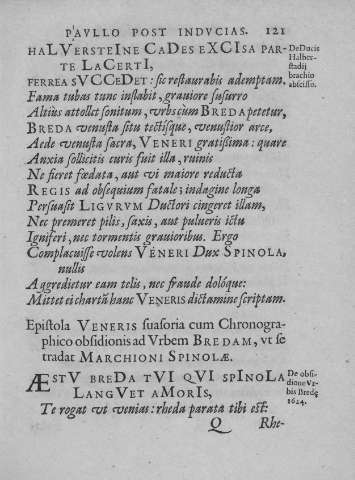 PAVLLO POST INDVCIAS. 121
HaLVersteIne CaDes eXCIsa par-
te LaCertI,
ferrea sVCCeDet: sic restaurabis ademptam.
De Ducis
Halber-
stadij
brachio
abscisso.
Fama tubas tunc inflabit, grauiore susurro
Altius attollet sonitum, vrbscum BREDA petetur,
BREDA venusta situ tectísque, venustior arce,
Aede venusta sacra, VENERI gratissima: quare
Anxia sollicitis curis fuit illa, ruinis
Ne fieret fœdata, aut vi maiore reducta
REGIS ad obsequium fatale; indagine longa
Persuasit LIGVRVM Ductori cingeret illam,
Nec premeret pilis, saxis, aut pulueris ictu
Igniferi, nec tormentis grauioribus. Ergo
Complacuisse volens VENERI Dux SPINOLA,
nullis
Aggredietur eam telis, nec fraude dolóque:
Mittet ei chartā hanc VENERIS dictamine scriptam.
Epistola VENERIS suasoria cum Chronogra-
phico obsidionis ad Vrbem BREDAM, vt se
tradat MARCHIONI SPINOLÆ.
ÆstV breDa tVI qVI spInoLa
LangVet aMorIs,
De obsi-
dione Vr-
bis Bredę
1624.
Te rogat vt venias: rheda parata tibi est:
Q Rhe-